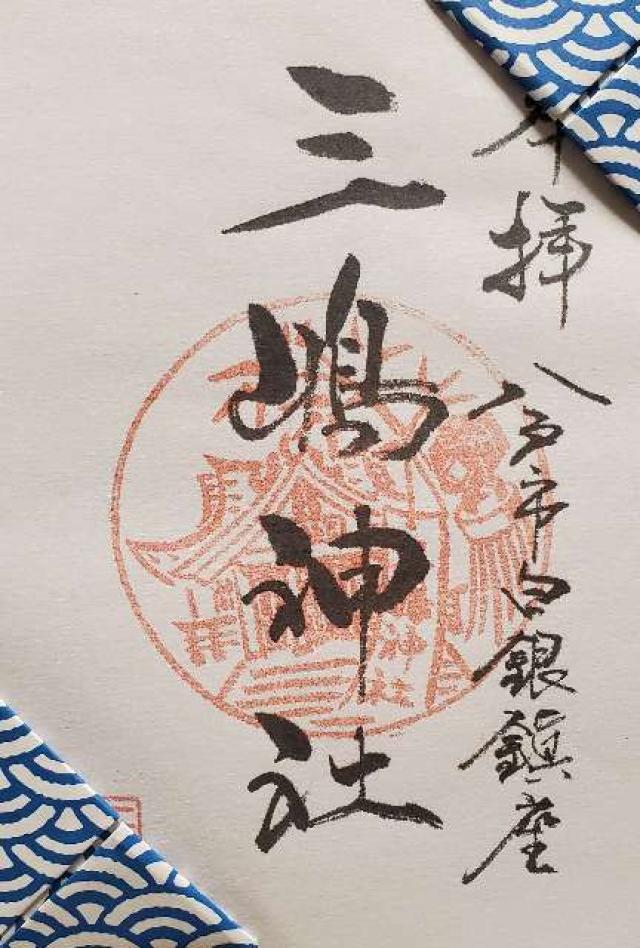 奉拝 八戸市白銀鎮座
三嶋神社
神社